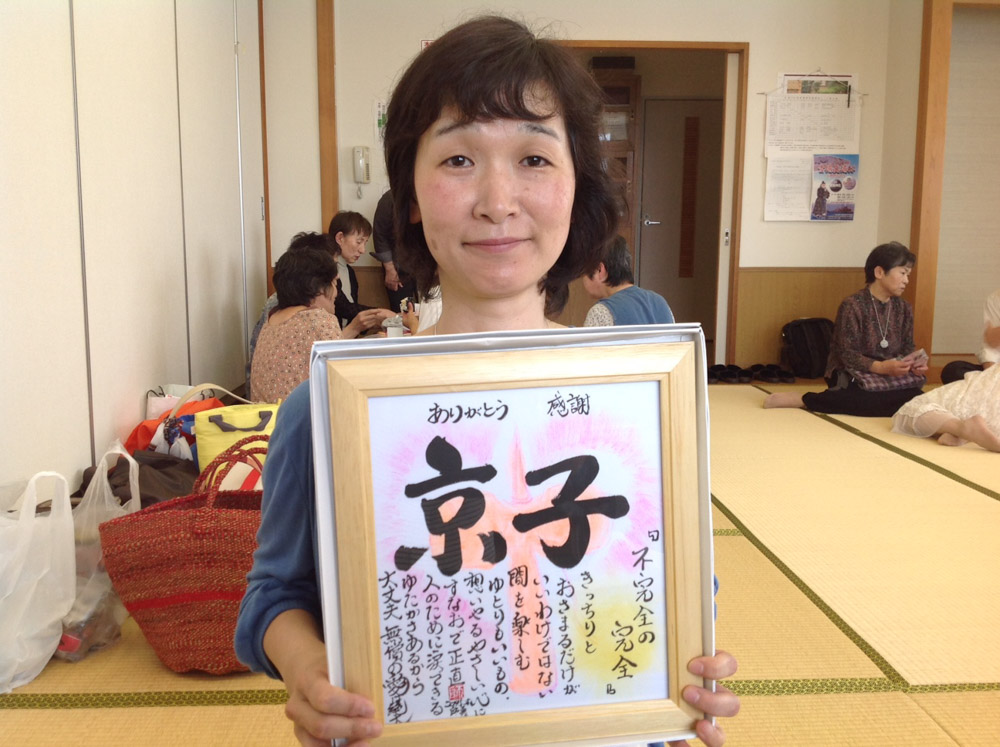 ありがとう 感謝
京子
「不完全の
完全」
きっちりと
おさまるだけが
いいわけではない
間を楽しむ
ゆとりもいいもの。
想いやるやさしい心に
すなおで正直
人のために涙できる
ゆたかさあるから
大丈夫 無償の